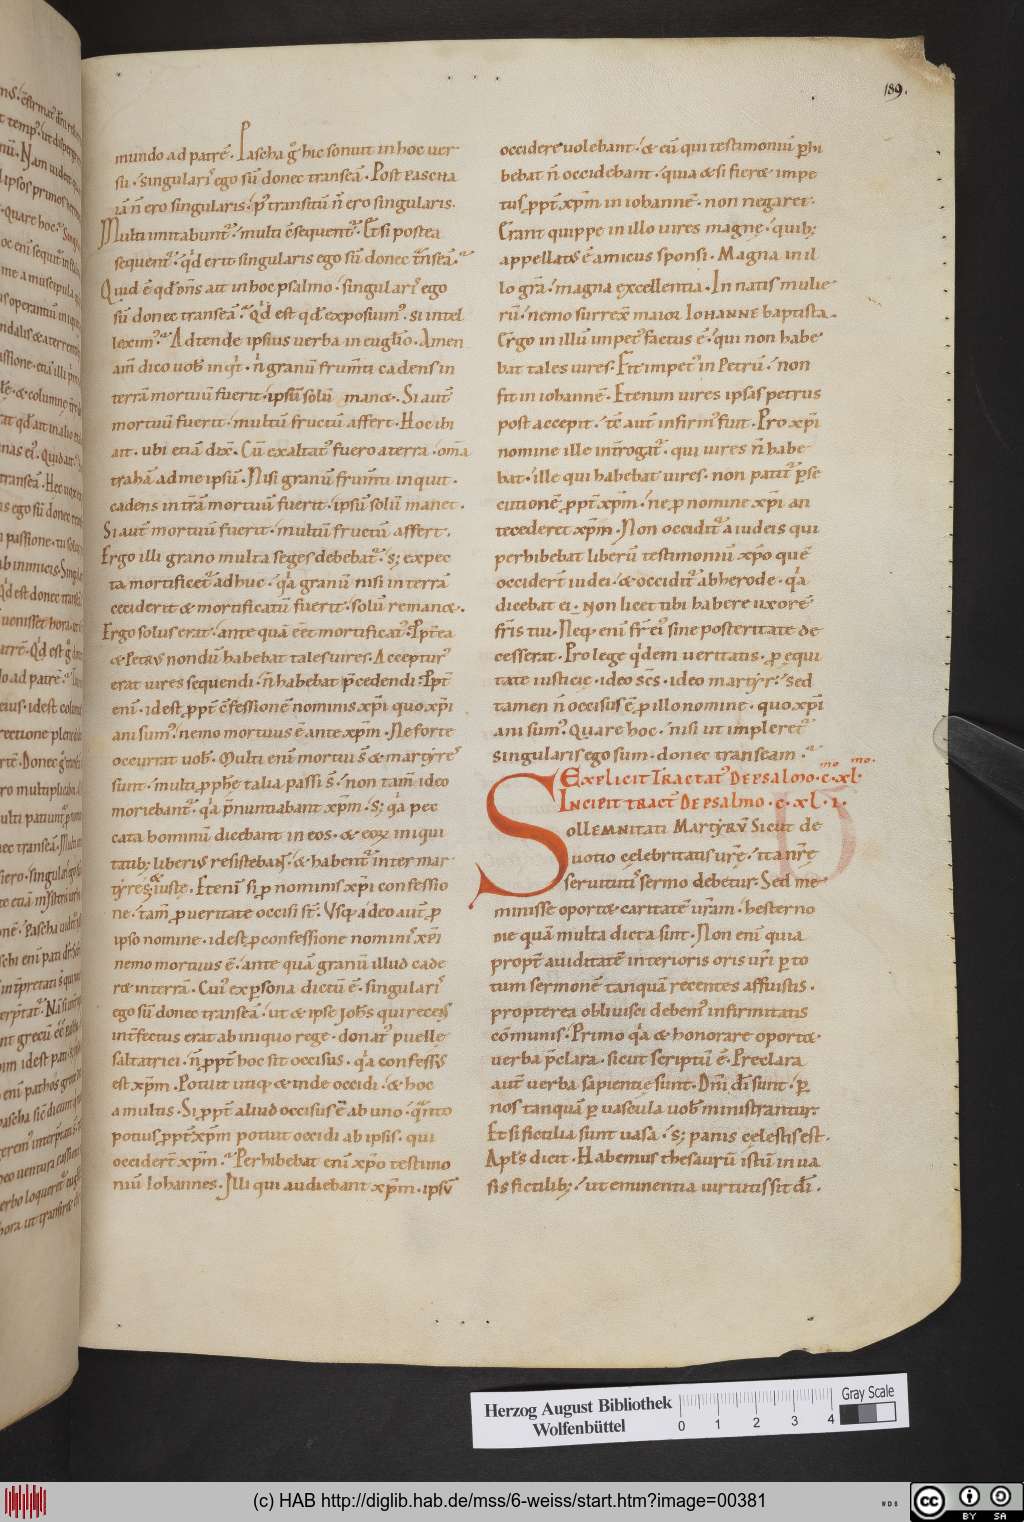 189.
mundo ad patrē. Pascha g̊ hic sonuit in hoc uer
su. singulariꝰ ego sū donec transeā. Post pascha
iā ñ ero singularis. p̕ transitū ñ ero singularis.
Multi imitabunt᷑. multi c̄sequent᷑. Etsi postea
sequent᷑. qd̕ erit singularis ego sū donec t̄nseā.
Quid ē qd̕ oñs ait in hoc psalmo. singulariꝰ ego
sū donec transeā. Qd̕ est qd̕ exposuimꝰ. si intel
leximꝰ. Adtende ipsius uerba in euglio. Amen
am̄ dico uob̕ inqt̕. ñ granū frum̄ti cadens in
terrā mortuū fuerit. ipsū solū manet. Si aut̄
mortuū fuerit. multū fructū affert. Hoc ibi
ait. ubi etiā dix̄. Cū exaltatꝰ fuero a terra. om̄a
trahā ad me ipsū. Nisi granū frum̄ti inquit.
cadens in t̄rā mortuū fuerit. ipsū solū manet.
Si aut̄ mortuū fuerit. multū fructū affert.
Ergo illi grano multa seges debebat᷑. s; expec
ta mortificet᷑ adhuc. qa̕ granū nisi in terrā
ceciderit & mortificatū fuerit. solū remanet.
Ergo solus erit. ante quā eet̄ mortificatꝰ. Ppt̄ea
& Petrus nondū habebat tales uires. Accepturꝰ
erat uires sequendi. ñ habebat p̄cedendi. Ppt̄
eni. id est ꝓpt̄ c̄fessionē nominis xp̄i quo xp̄i
ani sumꝰ. nemo mortuus ē ante xp̄m. Ne forte
occurrat uob̕. Multi eni mortui s̄ & martyreſ
sunt. multi ꝓphe talia passi s̄. non tam̄ ideo
moriebant᷑. qa̕ p̄nuntiabant xp̄m. s; qa̕ pec
cata hominū dicebant in eos. & eoꝝ iniqui
tatib; liberius resistebant. & habent᷑ inter mar
tyres & iuste. Eteni si ꝓ nominis xp̄i confessio
ne. tam̄ ꝓ ueritate occisi st̄. Usq; adeo aut̄ ꝓ
ipso nomine. id est ꝓ confessione nominis xp̄i
nemo mortuus ē. ante quā granū illud cade
ret in terrā. Cuiꝰ ex ꝑsona dictū ē. singulariꝰ
ego sū donec transeā. ut & ipse Johs̄ qui recens
int̄fectus erat ab iniquo rege. donatꝰ puelle
saltatrici. ñ ꝓpt̄ hoc sit occisus. qa̕ confessus
est xp̄m. Potuit utiq; & inde occidi. & hoc
a multis. Si ꝓpt̄ aliud occisus ē ab uno. q̄nto
potius ꝓpt̄ xp̄m potuit occidi ab ipsis. qui
occidert̄ xp̄m. Perhibebat eni xp̄o testimo
niū Iohannes. Illi qui audiebant xp̄m. ipsū
occidere uolebant. & eū qui testimoniū ꝑhi
bebat ñ occidebant. quia & si fieret impe
tus ꝓpt̄ xp̄m in iohannē. non negaret.
Erant quippe in illo uires magnę. quib;
appellatus ē amicus sponsi. Magna in il
lo gra̅. magna excellentia. In natis mulie
rū. nemo surrex̄ maior Iohanne baptista.
Ergo in illū impetꝰ factus ē. qui non habe
bat tales uires. Fit impetꝰ in Petrū. non
fit in iohannē. Etenim uires ipsas petrus
post accepit. tc̄ aut̄ infirmꝰ fuit. Pro xp̄i
nomine ille int̄rogat᷑. qui uires ñ habe
bat. ille qui habebat uires. non patit᷑ ꝑse
cutionē ꝓpt̄ xp̄m. ne ꝓ nomine xp̄i an
tecederet xp̄m. Non occidit᷑ a iudeis qui
perhibebat liberū testimoniū xp̄o quē
occidert̄ iudei. & occidit᷑ ab herode. qa̕
dicebat ei. Non licet tibi habere uxorē
fr̄is tui. Neq; eni fr̄ eiꝰ sine posteritate de
cesserat. Pro lege qd̕em ueritatis. ꝓ equi
tate iusticię. ideo scs̄. ideo martyr. sed
tamen ñ occisus ē ꝓ illo nomine. quo xp̄i
ani sumꝰ. Quare hoc. nisi ut impleret᷑
singularis ego sum. donec transeam.
Explicit tractatꝰ de psalmo. c. xl.
Incipit tract̄ de psalmo. c. xl. i.
Sollemnitati Martyrū sicut de
uotio celebritatis urę̄. ita nrę̄
seruitutiſ sermo debetur. Sed me
minisse oportet caritatē uram̄. hesterno
die quā multa dicta sint. Non eni quia
propt̄ auiditatē interioris oris uri̅ ꝑ to
tum sermonē tanquā recentes affuistis.
propterea obliuisci debemꝰ infirmitatis
cōmunis. Primo qa̕ & honorare oportet
uerba p̄clara. sicut scriptū ē. Preclara
aut̄ uerba sapientię sunt. Dn̄i dī sunt. ꝑ
nos tanquā ꝑ uascula uob̕ ministrantur.
Etsi fictilia sunt uasa. s; panis cęlestis est.
Apls̄ dicit. Habemus thesaurū istū in ua
sis fictilib;. ut eminentia uirtutis sit dī.
Herzog August Bibliothek
Wolfenbüttel
0 1 2 3 4
Gray Scale
(c) HAB http://diglib.hab.de/mss/6-weiss/start.htm?image=00381
CC BY SA